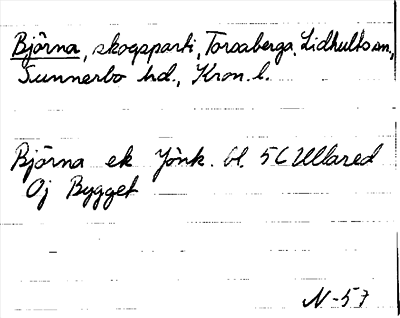 Björna, skogsparti, Torsaberga, Lidhults sn,
Sunnerbo hd., Kron. l.
Björna ek Jönk. bl. 5C Ullared
Oj Bygget
N-57